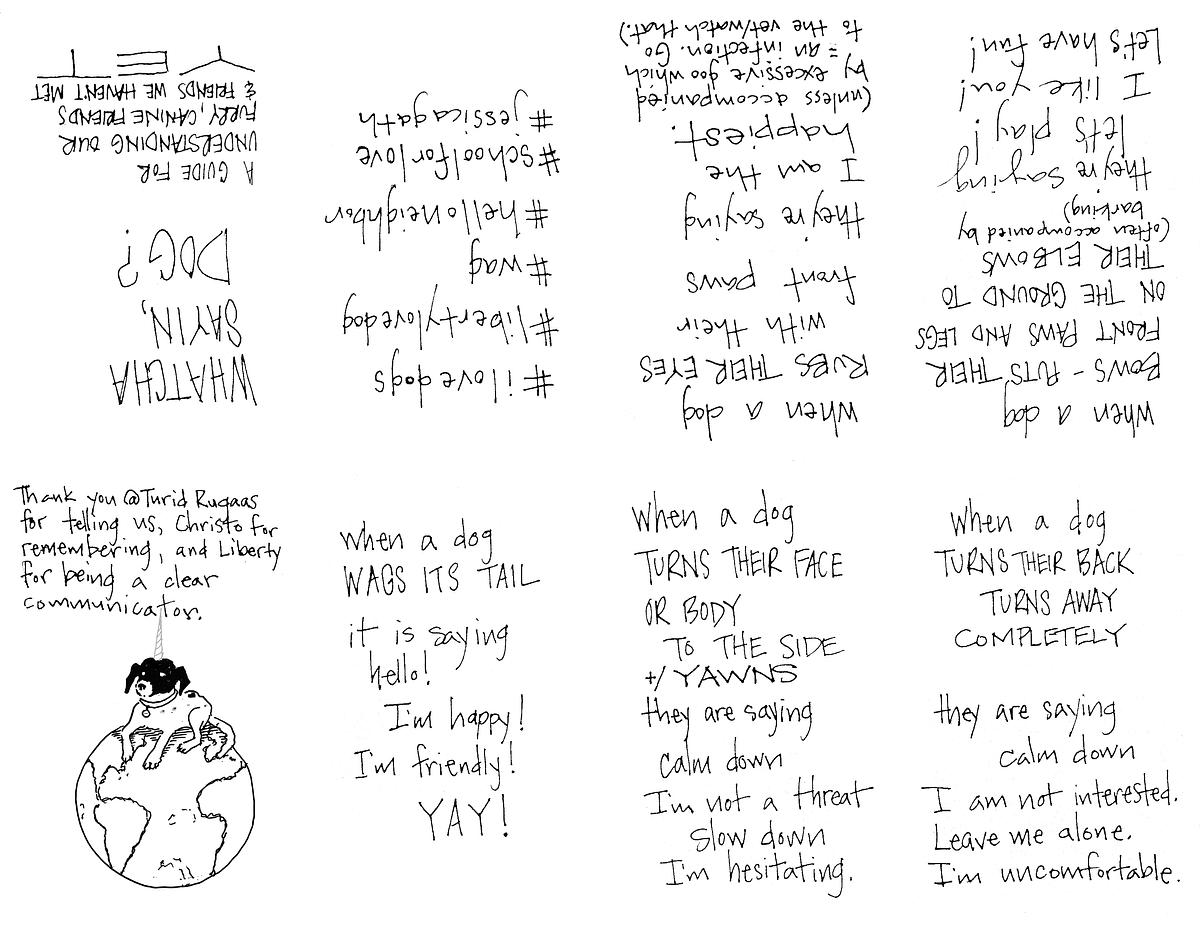 WHATCHA
SAYIN,
DOG?
A GUIDE FOR
UNDERSTANDING OUR
FURRY, CANINE FRIENDS
& FRIENDS WE HAVENT MET
YET
#ilovedogs
#libertylovedog
#wag
#helloneighbor
#schoolforlove
#jessicagath
when a dog
RUBS THEIR EYES
with their
front paws
they're saying
I am the
happiest.
(unless accompanied
by excessive goo which
= an infection. Go
to the vet/watch that.)
when a dog
BOWS - PUTS THEIR
FRONT PAWS AND LEGS
ON THE GROUND TO
THEIR ELBOWS
(often accompanied by
barking)
they're saying
let's play!
I like you!
Let's have fun!
Thank you @Turid Rugaas
for telling us, Christo for
remembering, and Liberty
for being a clear
communicator.
when a dog
WAGS ITS TAIL
it is saying
hello!
I'm happy!
I'm friendly!
YAY!
when a dog
TURNS THEIR FACE
OR BODY
TO THE SIDE
+/ YAWNS
they are saying
calm down
I'm not a threat
slow down
I'm hesitating.
when a dog
TURNS THEIR BACK
TURNS AWAY
COMPLETELY
they are saying
calm down
I am not interested.
Leave me alone.
I'm uncomfortable.